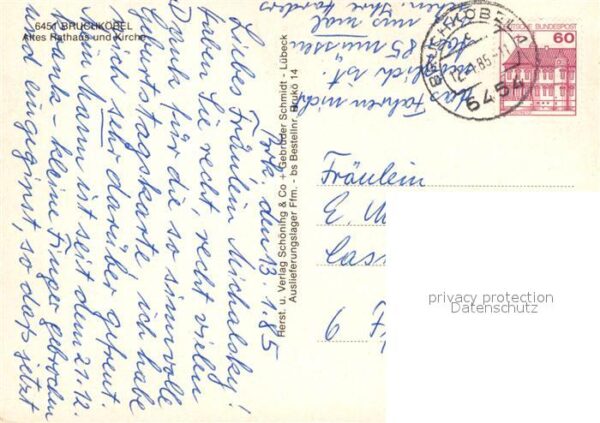 6451 BRUCHKÖBEL
Altes Rathaus und Kirche
Herst. u. Verlag Schöning & Co + Gebrüder Schmidt - Lübeck
Auslieferungslager Ffm. - bs Bestellnr. Brukö 14
den 13.1.85
Liebes Fräulein Michalsky!
haben Sie recht, recht vielen
Dank für die so sinnvolle
Geburtstagskarte, ich habe
mich sehr darüber gefreut.
Mein Mann ist seit dem 21.12.
krank - kleine Finger gebrochen
und eingegipst, so dass jetzt
das Fahren nicht
möglich ist.
85 müssen
nun mal
Ihre
DEUTSCHE BUNDESPOST
60
BRUCHKÖBEL 1
.85.-11
6454
Fräulein
E.
privacy protection
Datenschutz